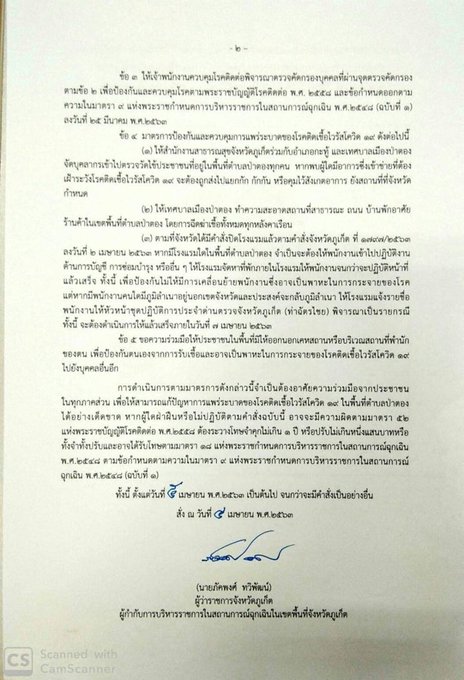 - ๒ -
ข้อ ๓ ให้เจ้าพนักงานควบคุมโรคติดต่อพิจารณาตรวจคัดกรองบุคคลที่ผ่านจุดตรวจคัดกรอง
ตามข้อ ๒ เพื่อป้องกันและควบคุมโรคตามพระราชบัญญัติโรคติดต่อ พ.ศ. ๒๕๕๘ และข้อกำหนดออกตาม
ความในมาตรา ๙ แห่งพระราชกำหนดการบริหารราชการในสถานการณ์ฉุกเฉิน พ.ศ.๒๕๔๘ (ฉบับที่ ๑)
ลงวันที่ ๒๕ มีนาคม พ.ศ.๒๕๖๓
ข้อ ๔ มาตรการป้องกันและควบคุมการแพร่ระบาดของโรคติดเชื้อไวรัสโควิด ๑๙ ดังต่อไปนี้
(๑) ให้สำนักงานสาธารณสุขจังหวัดภูเก็ตร่วมกับอำเภอกะทู้ และเทศบาลเมืองป่าตอง
จัดบุคลากรเข้าไปตรวจวัดไข้ประชาชนที่อยู่ในพื้นที่ตำบลป่าตองทุกคน หากพบผู้ใดมีอาการซึ่งเข้าข่ายที่ต้อง
เฝ้าระวังโรคติดเชื้อไวรัสโควิด ๑๙ จะต้องถูกส่งไปแยกกัก กักกัน หรือคุมไว้สังเกตอาการ ยังสถานที่ที่จังหวัด
กำหนด
(๒) ให้เทศบาลเมืองป่าตอง ทำความสะอาดสถานที่สาธารณะ ถนน บ้านพักอาศัย
ร้านค้าในเขตพื้นที่ตำบลป่าตอง โดยการฉีดฆ่าเชื้อทั้งหมดทุกหลังคาเรือน
(๓) ตามที่จังหวัดได้มีคำสั่งปิดโรงแรมแล้วตามคำสั่งจังหวัดภูเก็ต ที่ ๑๗๙๗/๒๕๖๓
ลงวันที่ ๒ เมษายน ๒๕๖๓ หากมีโรงแรมใดในพื้นที่ตำบลป่าตอง จำเป็นจะต้องให้พนักงานเข้าไปปฏิบัติงาน
ด้านการบัญชี การซ่อมบำรุง หรืออื่น ๆ ให้โรงแรมจัดหาที่พักภายในโรงแรมให้พนักงานจนกว่าจะปฏิบัติหน้าที่
แล้วเสร็จ ทั้งนี้ เพื่อป้องกันไม่ให้มีการเคลื่อนย้ายพนักงานซึ่งอาจเป็นพาหะในการกระจายของโรค
แต่หากมีพนักงานคนใดมีภูมิลำเนาอยู่นอกเขตจังหวัดและประสงค์จะกลับภูมิลำเนา ให้โรงแรมแจ้งรายชื่อ
พนักงานให้หัวหน้าชุดปฏิบัติการประจำด่านตรวจจังหวัดภูเก็ต (ท่าฉัตรไชย) พิจารณาเป็นรายกรณี
ทั้งนี้ จะต้องดำเนินการให้แล้วเสร็จภายในวันที่ ๗ เมษายน ๒๕๖๓
ข้อ ๕ ขอความร่วมมือให้ประชาชนในพื้นที่ที่มิให้ออกนอกเคหสถานหรือบริเวณสถานที่พำนัก
ของตน เพื่อป้องกันตนเองจากการรับเชื้อและอาจเป็นพาหะในการกระจายของโรคติดเชื้อไวรัสโควิด ๑๙
ไปยังบุคคลอื่นอีก
การดำเนินการตามมาตรการดังกล่าวนี้จำเป็นต้องอาศัยความร่วมมือจากประชาชน
ในทุกภาคส่วน เพื่อให้สามารถแก้ปัญหาการแพร่ระบาดของโรคติดเชื้อไวรัสโควิด ๑๙ ในพื้นที่ตำบลป่าตอง
ได้อย่างเด็ดขาด หากผู้ใดฝ่าฝืนหรือไม่ปฏิบัติตามคำสั่งฉบับนี้ อาจจะมีความผิดตามมาตรา ๕๒
แห่งพระราชบัญญัติโรคติดต่อ พ.ศ.๒๕๕๘ ต้องระวางโทษจำคุกไม่เกิน ๑ ปี หรือปรับไม่เกินหนึ่งแสนบาทหรือ
ทั้งจำทั้งปรับและอาจได้รับโทษตามมาตรา ๑๘ แห่งพระราชกำหนดการบริหารราชการในสถานการณ์ฉุกเฉิน
พ.ศ.๒๕๔๘ ตามข้อกำหนดตามความในมาตรา ๙ แห่งพระราชกำหนดการบริหารราชการในสถานการณ์
ฉุกเฉิน พ.ศ.๒๕๔๘ (ฉบับที่ ๑)
ทั้งนี้ ตั้งแต่วันที่ เมษายน พ.ศ.๒๕๖๓ เป็นต้นไป จนกว่าจะมีคำสั่งเป็นอย่างอื่น
สั่ง ณ วันที่ ๕ เมษายน พ.ศ.๒๕๖๓
(นายภัคพงศ์ ทวิพัฒน์)
ผู้ว่าราชการจังหวัดภูเก็ต
ผู้กำกับการบริหารราชการในสถานการณ์ฉุกเฉินในเขตพื้นที่จังหวัดภูเก็ต
CS Scanned with
CamScanner